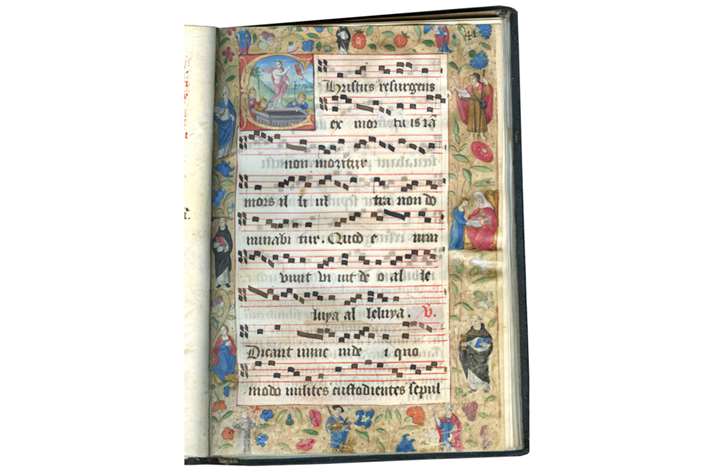 Christus resurgens
ex mor tu is ia
non moritur
mors il li ul tra non do
minabi tur. Quod e nim
vivit vi uit de o al le
luya al leluya. V.
Dicant nunc iude i quo
modo milites custodientes sepul